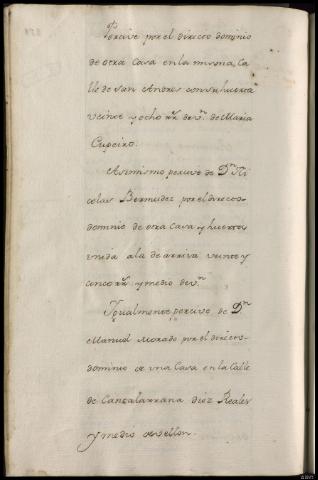 Percive por el directo dominio
de otra Casa en la misma Ca
lle de San Andres con su huerta
veinte y ocho rr.s de v.n de Maria
Cupeiro.
Asimismo percive de D.n Ni
colas Bermudez por el directo
dominio de otra Casa y huerto
unida ala de arriva veinte y
cinco rr.s y medio de v.n
Igualmente percive de D.n
Manuel Morado por el directo
dominio de una Casa en la Calle
de Cantalarrana diez Reales
y medio de vellon.